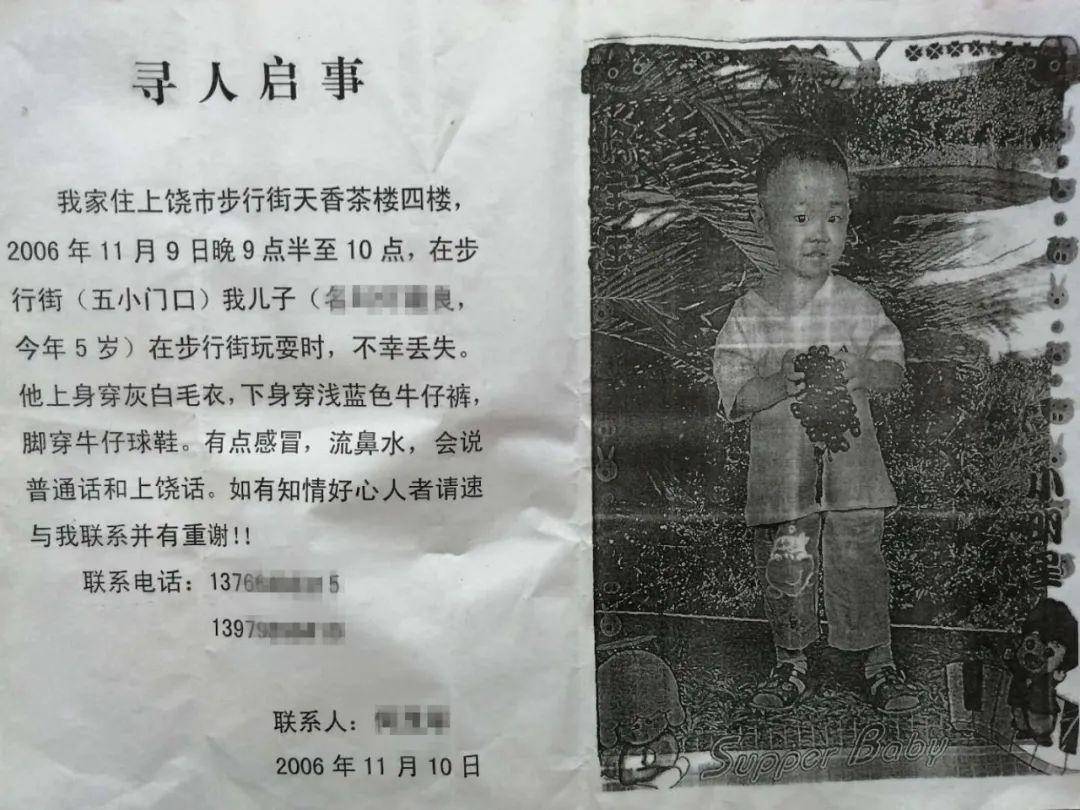 寻人启事
我家住上饶市步行街天香茶楼四楼，
2006年11月9日晚9点半至10点，在步
行街（五小门口）我儿子（名良，
今年5岁）在步行街玩耍时，不幸丢失。
他上身穿灰白毛衣，下身穿浅蓝色牛仔裤，
脚穿牛仔球鞋。有点感冒，流鼻水，会说
普通话和上饶话。如有知情好心人者请速
与我联系并有重谢!!
联系电话：1376 5
1397
联系人：
2006年11月10日
小明星
Supper Baby